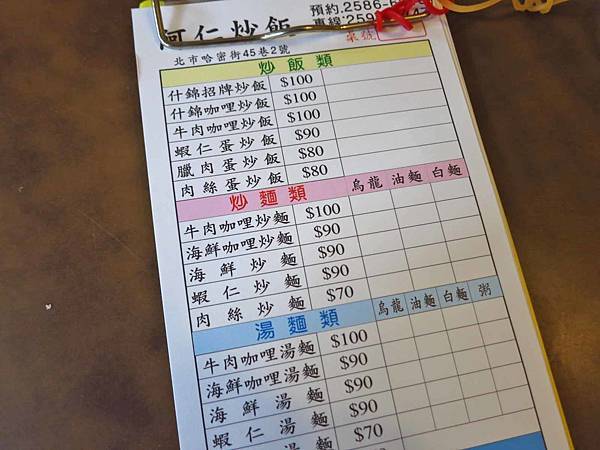 阿仁炒飯
預約.2586-6
專線:259
北市哈密街45巷2號
桌號
炒飯類
什錦招牌炒飯 $100
什錦咖哩炒飯 $100
牛肉咖哩炒飯 $100
蝦仁蛋炒飯 $90
臘肉蛋炒飯 $80
肉絲蛋炒飯 $80
炒麵類 烏龍 油麵 白麵
牛肉咖哩炒麵 $100
海鮮咖哩炒麵 $90
海鮮炒麵 $90
蝦仁炒麵 $90
肉絲炒麵 $70
湯麵類 烏龍 油麵 白麵 粥
牛肉咖哩湯麵 $100
海鮮咖哩湯麵 $90
海鮮湯麵 $90
蝦仁湯麵 $90
$70